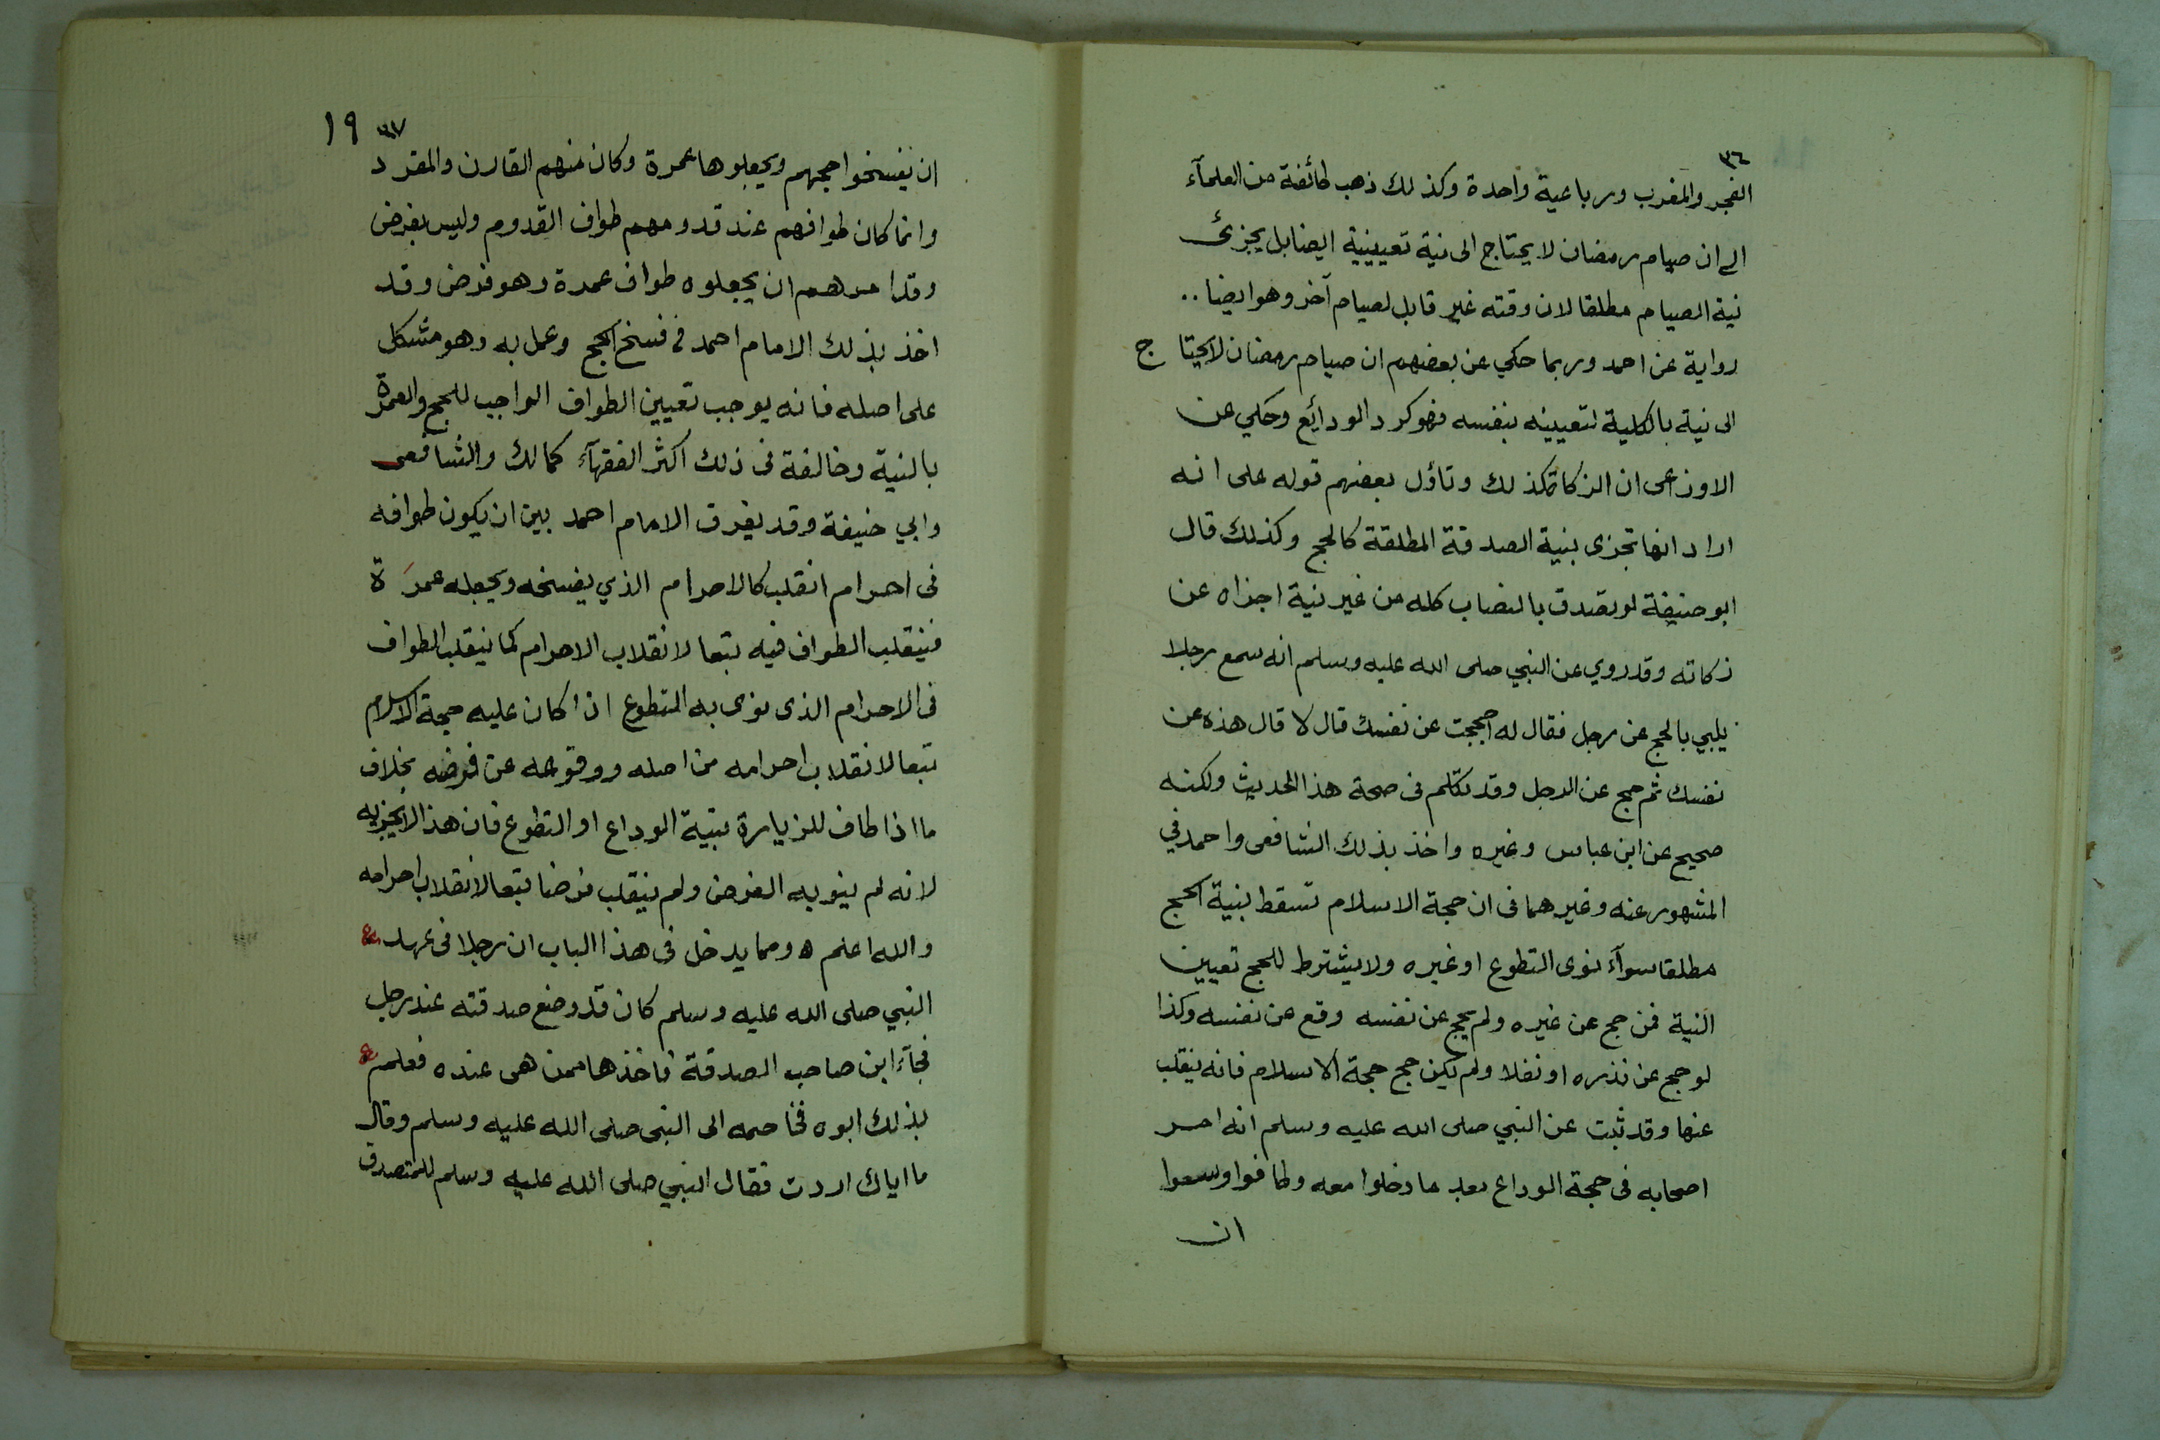 ٣٦
الفجر والمغرب ورباعية واحدة وكذلك ذهب طائفة من العلمآء
الى ان صيام رمضان لا يحتاج الى نية تعيينية ايضا بل يجزئ
نية الصيام مطلقا لان وقته غير قابل لصيام آخر وهو ايضا ..
رواية عن احمد وربما حكي عن بعضهم ان صيام رمضان لا يحتا ج
الى نية بالكلية لتعيينه بنفسه فهو كرد الودائع وحكي عن
الاوزاعى ان الزكاة كذلك وتأول بعضهم قوله على انه
اراد انها تجزى بنية الصدقة المطلقة كالحج وكذلك قال
ابو حنيفة لو تصدق بالنصاب كله من غير نية اجزاه عن
زكاته وقد روي عن النبي صلى الله عليه وسلم انه سمع رجلا
يلبي بالحج عن رجل فقال له احججت عن نفسك قال لا قال هذه عن
نفسك ثم حج عن الرجل وقد تكلم فى صحة هذا الحديث ولكنه
صحيح عن ابن عباس وغيره واخذ بذلك الشافعى واحمد في
المشهور عنه وغيرهما فى ان حجة الاسلام تسقط بنية الحج
مطلقا سوآء نوى التطوع او غيره ولا يشترط للحج تعيين
النية فمن حج عن غيره ولم يحج عن نفسه وقع عن نفسه وكذا
لو حج عن نذره او نفلا ولم يكن حج حجة الاسلام فانه ينقلب
عنها وقد ثبت عن النبي صلى الله عليه وسلم انه امر
اصحابه فى حجة الوداع بعد ما دخلوا معه وطافوا وسعوا
ان
١٩ ٣٧
ان يفسخوا حجهم ويجعلوها عمرة وكان منهم القارن والمفرد
وانما كان طوافهم عند قدومهم طواف القدوم وليس بفرض
وقد امرهم ان يجعلوه طواف عمرة وهو فرض وقد
اخذ بذلك الامام احمد فى فسخ الحج وعمل به وهو مشكل
على اصله فانه يوجب تعيين الطواف الواجب للحج والعمرة
بالنية وخالفة فى ذلك اكثر الفقهآء كمالك والشافعى
وابي حنيفة وقد يفرق الامام احمد بين ان يكون طوافه
فى احرام انقلب كالاحرام الذي يفسخه ويجعله عمرَ ة
فينقلب الطواف فيه تبعا لانقلاب الاحرام كما ينقلب الطواف
فى الاحرام الذى نوى به المتطوع اذا كان عليه حجة الاسلام
تبعا لانقلاب احرامه من اصله ووقوعه عن فرضه بخلاف
ما اذا طاف للزيارة بنية الوداع او التطوع فان هذا لا يجزيه
لانه لم ينو به الفرض ولم ينقلب فرضا تبعا لانقلاب احرامه
والله اعلم ه ومما يدخل فى هذا الباب ان رجلا فى عهد
النبي صلى الله عليه وسلم كان قد وضع صدقته عند رجل
فجآء ابن صاحب الصدقة فاخذها ممن هى عنده فعلم
بذلك ابوه فخاصمه الى النبى صلى الله عليه وسلم وقال
ما اياك اردت فقال النبي صلى الله عليه وسلم للمتصدق